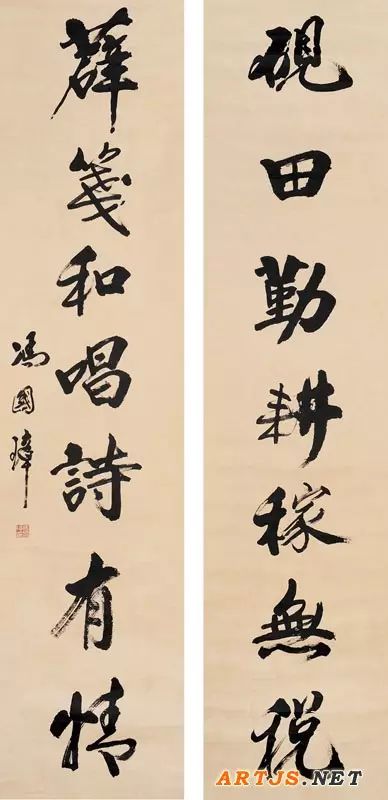 硯田勤耕稼無稅
薛箋和唱詩有情
馮國璋
ARTJS.NET